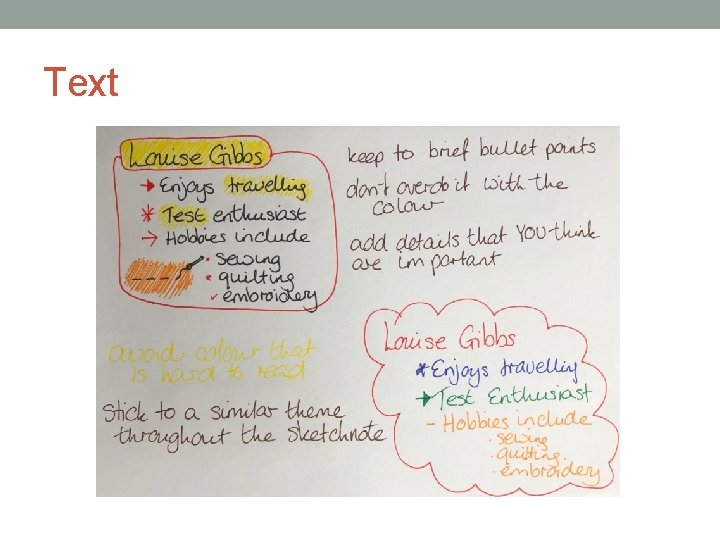 Text
Louise Gibbs
→ Enjoys travelling
* Test enthusiast
→ Hobbies include
• sewing
* quilting
✓ embroidery
keep to brief bullet points
don't overdo it with the
colour
add details that YOU think
are important
avoid colour that
is hard to read
Stick to a similar theme
throughout the sketchnote
Louise Gibbs
* Enjoys travelling
→ Test Enthusiast
- Hobbies include
• sewing
• quilting.
• embroidery